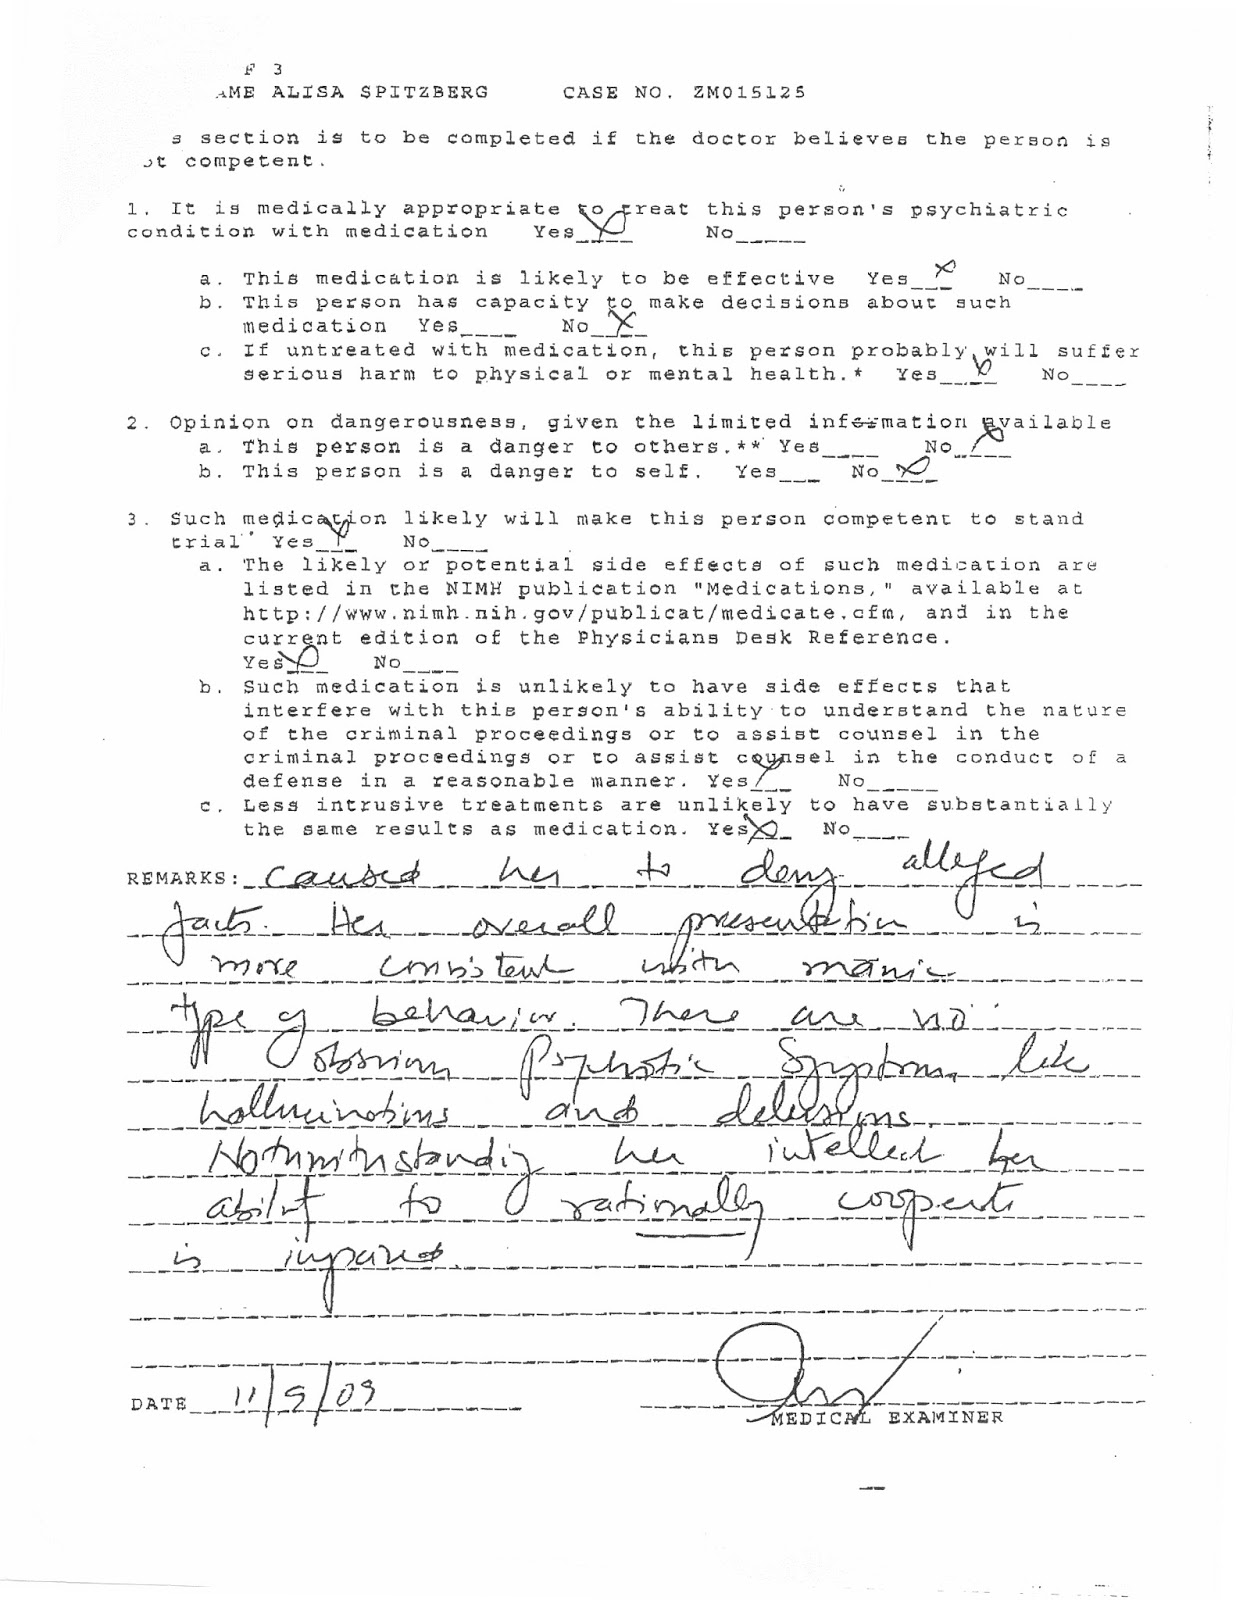 F 3
AME ALISA SPITZBERG CASE NO. ZM015125
s section is to be completed if the doctor believes the person is
ot competent.
1. It is medically appropriate to treat this person's psychiatric
condition with medication Yes X No_____
a. This medication is likely to be effective Yes X No____
b. This person has capacity to make decisions about such
medication Yes____ No X
c. If untreated with medication, this person probably will suffer
serious harm to physical or mental health.* Yes X No____
2. Opinion on dangerousness, given the limited information available
a. This person is a danger to others.** Yes____ No X
b. This person is a danger to self. Yes___ No X
3. Such medication likely will make this person competent to stand
trial Yes X No____
a. The likely or potential side effects of such medication are
listed in the NIMH publication "Medications," available at
http://www.nimh.nih.gov/publicat/medicate.cfm, and in the
current edition of the Physicians Desk Reference.
Yes X No____
b. Such medication is unlikely to have side effects that
interfere with this person's ability to understand the nature
of the criminal proceedings or to assist counsel in the
criminal proceedings or to assist counsel in the conduct of a
defense in a reasonable manner. Yes X No_____
c. Less intrusive treatments are unlikely to have substantially
the same results as medication. Yes X No____
REMARKS: caused her to deny alleged
facts. Her overall presentation is
more consistent with manic
type of behavior. There are no
obvious Psychotic Symptoms like
hallucinations and delusions.
Notwithstanding her intellect her
ability to rationally cooperate
is impaired.
DATE 11/9/09
MEDICAL EXAMINER